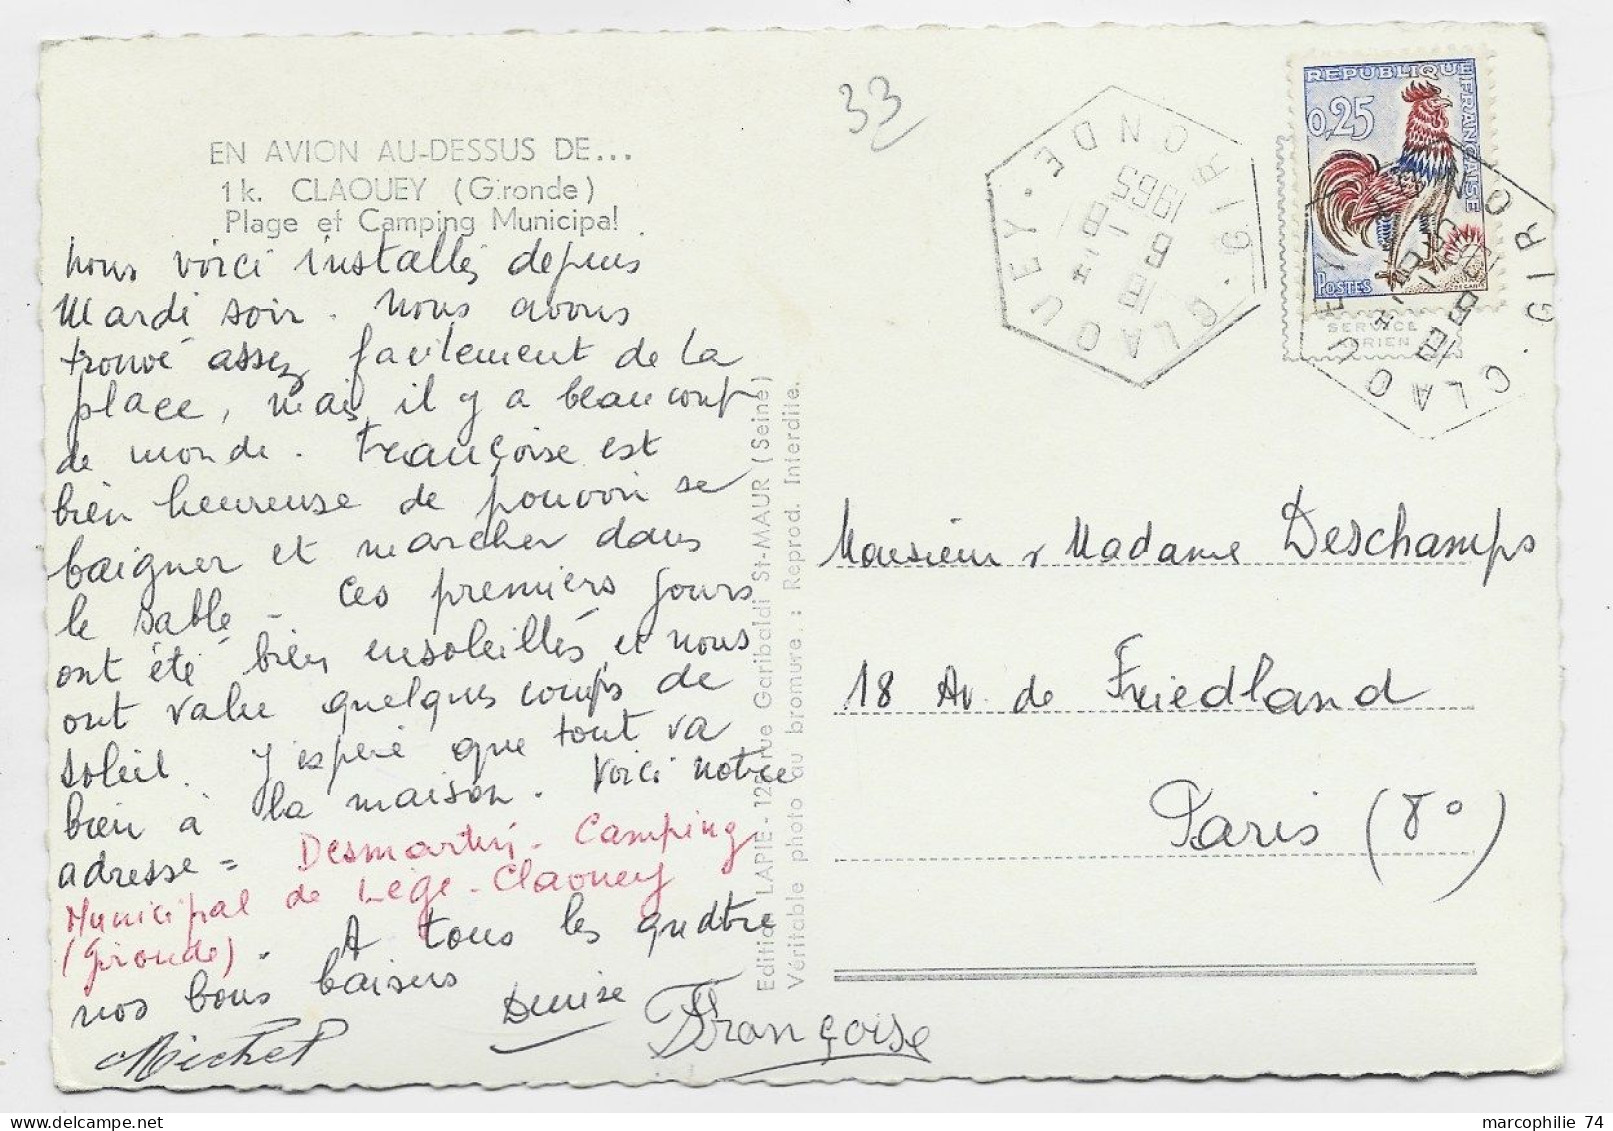 33
EN AVION AU-DESSUS DE...
1 k. CLAOUEY (Gironde)
Plage et Camping Municipal
Nous voici installés depuis
Mardi soir. Nous avons
trouvé assez facilement de la
place, mais il y a beaucoup
de monde. Françoise est
bien heureuse de pouvoir se
baigner et marcher dans
le sable - Ces premiers jours
ont été bien ensoleillés et nous
ont valu quelques coups de
soleil. J'espère que tout va
bien à la maison. Voici notre
adresse = Desmartin - Camping
Municipal de Lège - Claouey
(Gironde). A tous les quatre
nos bons baisers
Michel Denise Françoise
Edition LAPIE - 120, rue Garibaldi St-MAUR (Seine)
Véritable photo au bromure : Reprod. Interdite.
CLAOUEY · GIRONDE ·
18 H
9 - 8
1965
REPUBLIQUE FRANÇAISE
0,25
POSTES
DECARIS
SERVICE
AERIEN
CLAOUEY · GIRONDE
Monsieur & Madame Deschamps
18 Av. de Friedland
Paris (8°)
marcophilie 74